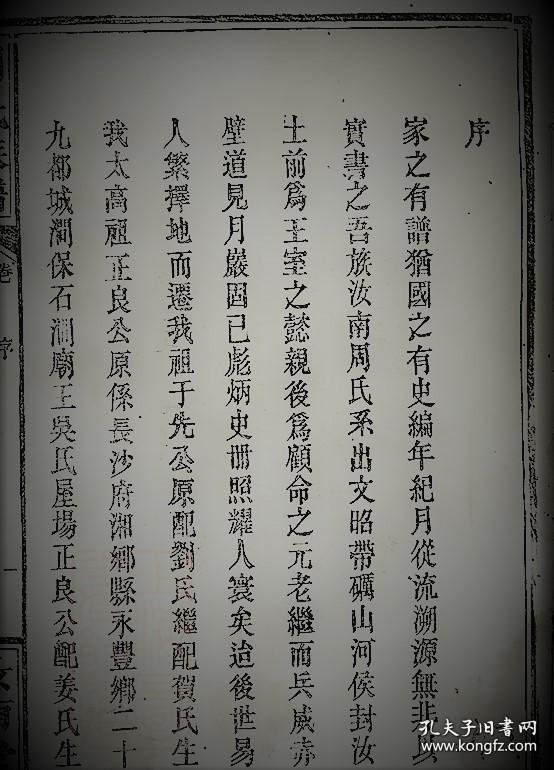 序
家之有譜猶國之有史編年紀月從流溯源無非以
實書之吾族汝南周氏系出文昭帶礪山河侯封汝
士前爲王室之懿親後爲顧命之元老繼而兵威赤
壁道見月巖固已彪炳史冊照耀人寰矣迨後世易
人繁擇地而遷我祖于先公原配劉氏繼配賀氏生
我太高祖正良公原係長沙府湘鄉縣永豐鄉二十
九都城澗保石澗廟王吳氏屋場正良公配姜氏生
卷
序
一
孔夫子旧书网
www.kongfz.com